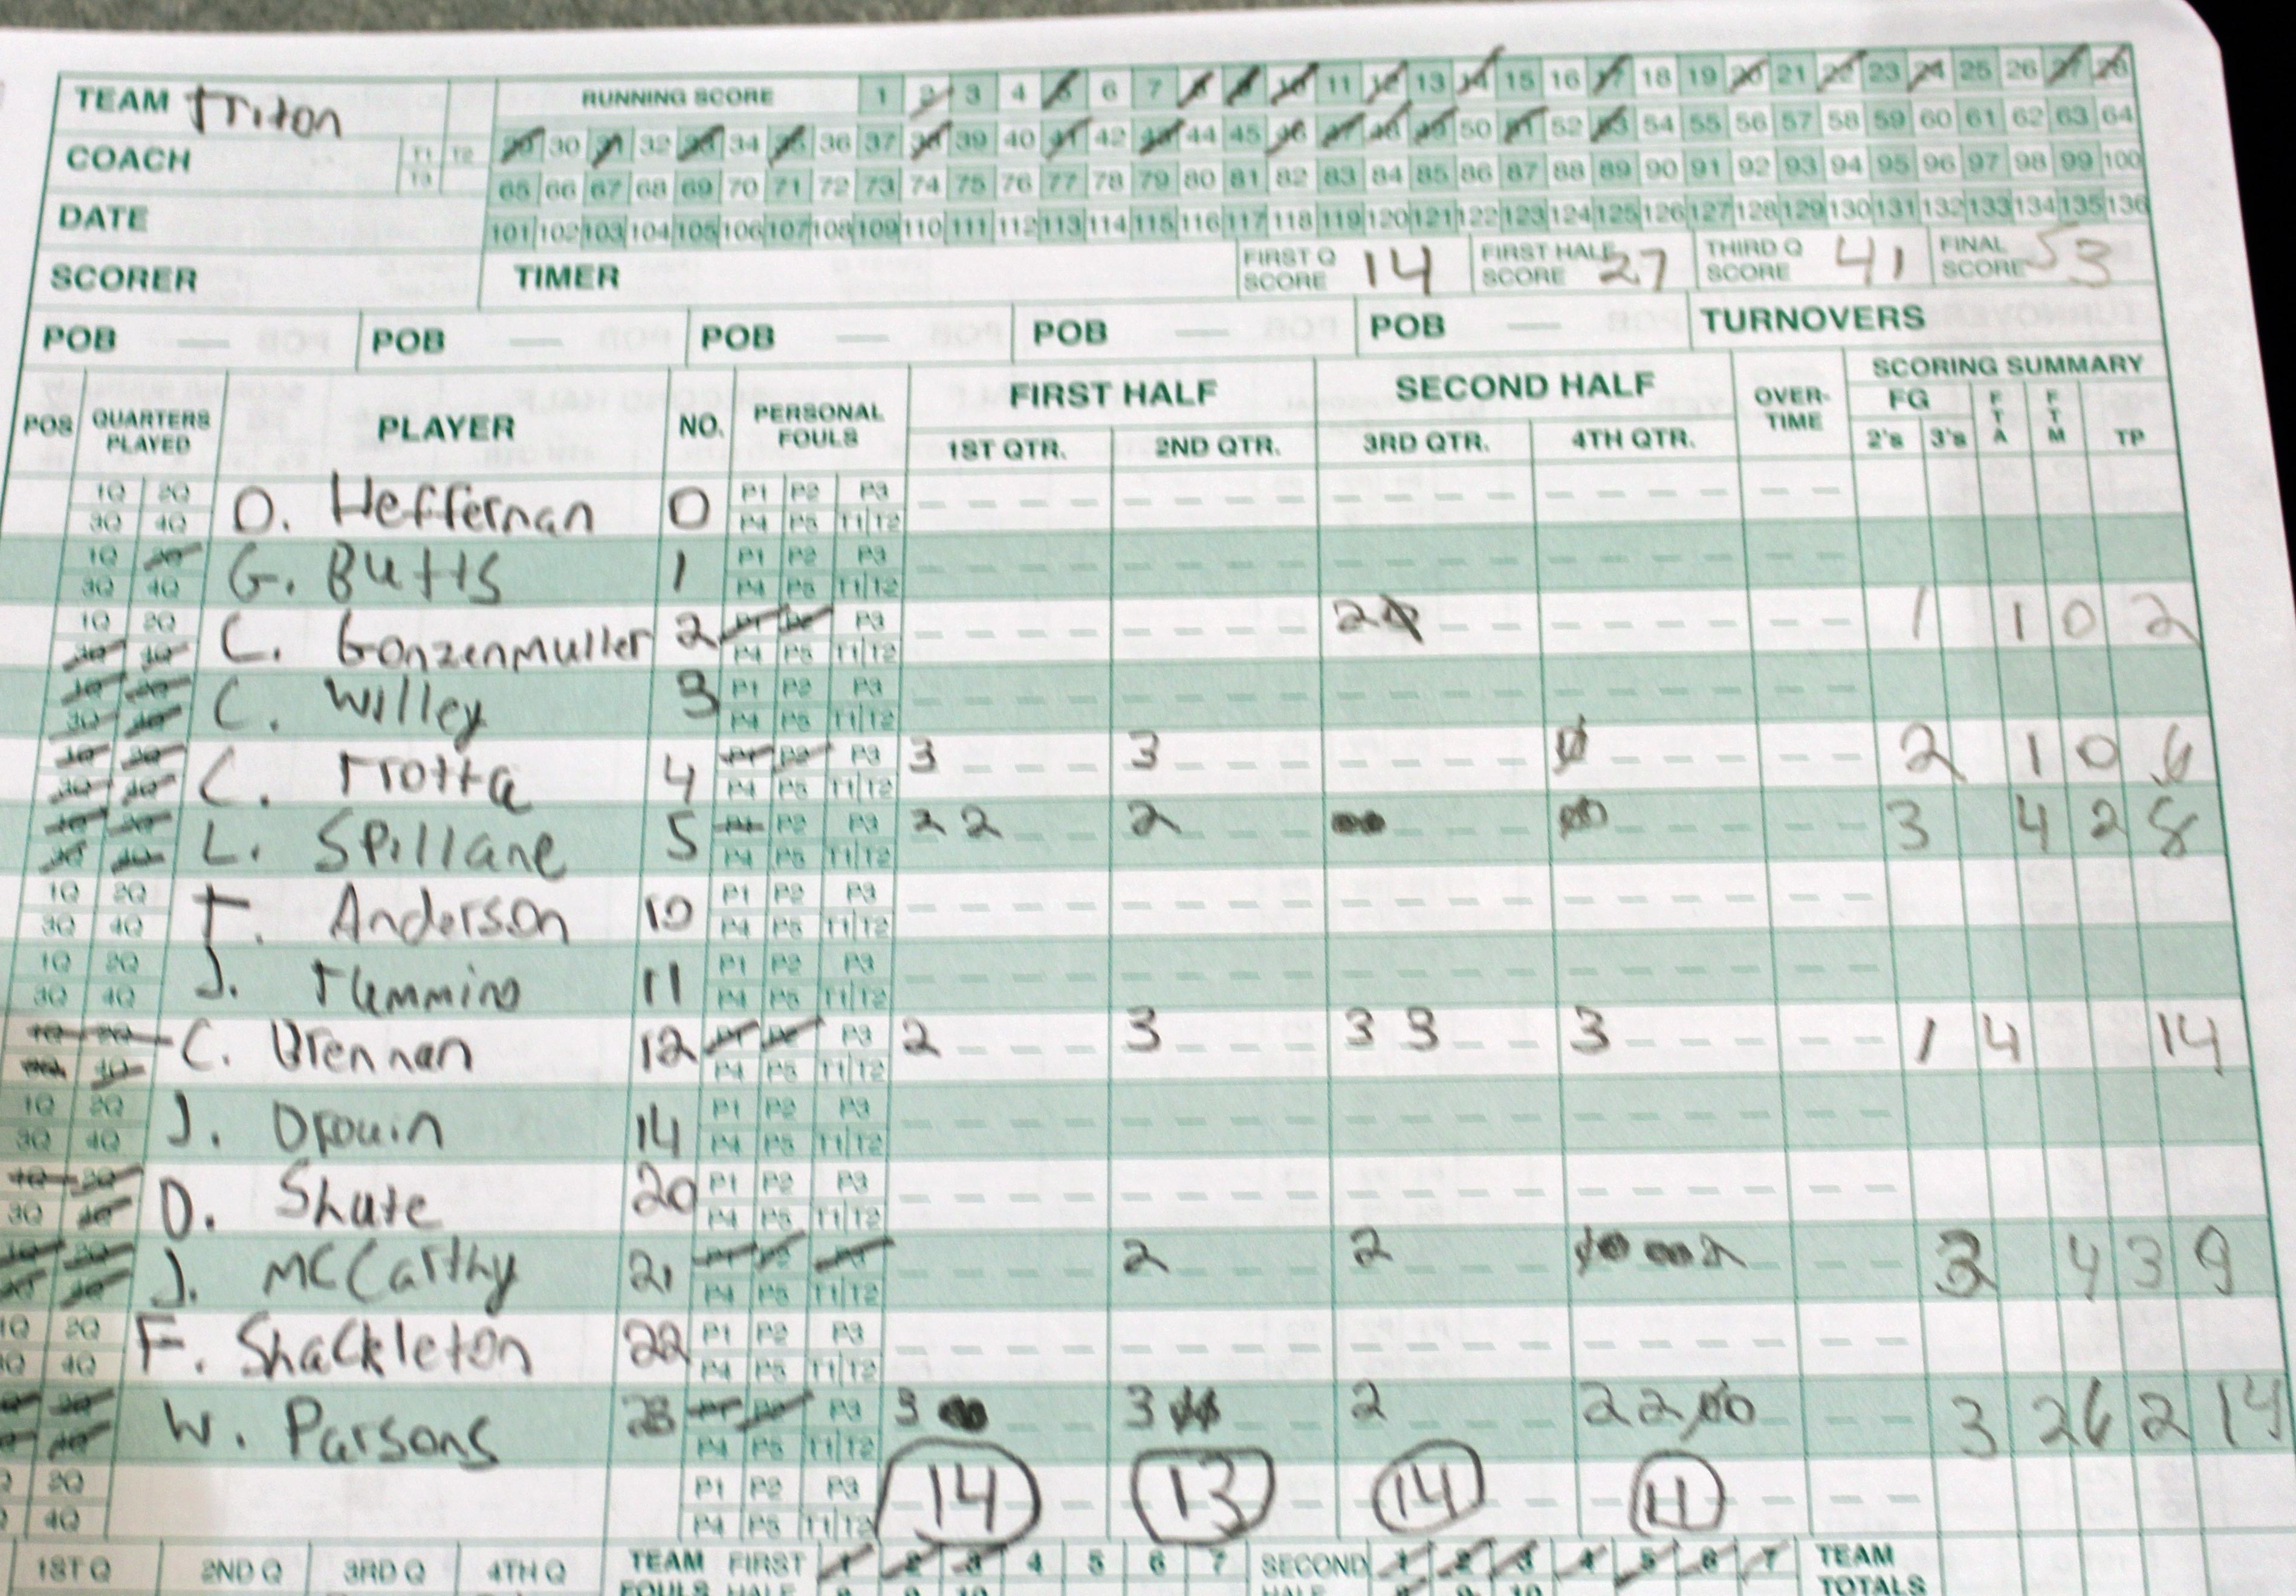 TEAM Triton RUNNING SCORE 1 2 3 4 5 6 7 8 9 10 11 12 13 14 15 16 17 18 19 20 21 22 23 24 25 26 27 28
29 30 31 32 33 34 35 36 37 38 39 40 41 42 43 44 45 46 47 48 49 50 51 52 53 54 55 56 57 58 59 60 61 62 63 64
COACH T1 T2 T3
65 66 67 68 69 70 71 72 73 74 75 76 77 78 79 80 81 82 83 84 85 86 87 88 89 90 91 92 93 94 95 96 97 98 99 100
DATE 101 102 103 104 105 106 107 108 109 110 111 112 113 114 115 116 117 118 119 120 121 122 123 124 125 126 127 128 129 130 131 132 133 134 135 136
SCORER TIMER FIRST Q SCORE 14 FIRST HALF SCORE 27 THIRD Q SCORE 41 FINAL SCORE 53
POB — POB — POB — POB — POB — TURNOVERS
POS QUARTERS PLAYED PLAYER NO. PERSONAL FOULS FIRST HALF SECOND HALF OVER-TIME SCORING SUMMARY
1ST QTR. 2ND QTR. 3RD QTR. 4TH QTR. FG 2's 3's FTA FTM TP
1Q 2Q D. Heffernan 0 P1 P2 P3
3Q 4Q P4 P5 T1 T2
1Q 2Q G. Butts 1 P1 P2 P3
3Q 4Q P4 P5 T1 T2
1Q 2Q C. Gonzenmuller 2 P1 P2 P3 2 1 1 0 2
3Q 4Q P4 P5 T1 T2
1Q 2Q C. Willey 3 P1 P2 P3
3Q 4Q P4 P5 T1 T2
1Q 2Q C. Trotta 4 P1 P2 P3 3 3 2 1 0 6
3Q 4Q P4 P5 T1 T2
1Q 2Q L. Spillane 5 P1 P2 P3 2 2 2 3 4 2 8
3Q 4Q P4 P5 T1 T2
1Q 2Q T. Anderson 10 P1 P2 P3
3Q 4Q P4 P5 T1 T2
1Q 2Q J. 11 P1 P2 P3
3Q 4Q P4 P5 T1 T2
1Q 2Q C. Brennan 12 P1 P2 P3 2 3 3 3 3 1 4 14
3Q 4Q P4 P5 T1 T2
1Q 2Q J. Drouin 14 P1 P2 P3
3Q 4Q P4 P5 T1 T2
1Q 2Q D. Shute 20 P1 P2 P3
3Q 4Q P4 P5 T1 T2
1Q 2Q J. McCarthy 21 P1 P2 P3 2 2 2 3 4 3 9
3Q 4Q P4 P5 T1 T2
1Q 2Q F. Shackleton 22 P1 P2 P3
3Q 4Q P4 P5 T1 T2
1Q 2Q W. Parsons 23 P1 P2 P3 3 3 2 2 2 3 2 6 2 14
3Q 4Q P4 P5 T1 T2
2Q P1 P2 P3 14 13 14 11
4Q P4 P5 T1 T2
1ST Q 2ND Q 3RD Q 4TH Q TEAM FOULS FIRST HALF 1 2 3 4 5 6 7 SECOND HALF 1 2 3 4 5 6 7 TEAM TOTALS
8 9 10 8 9 10